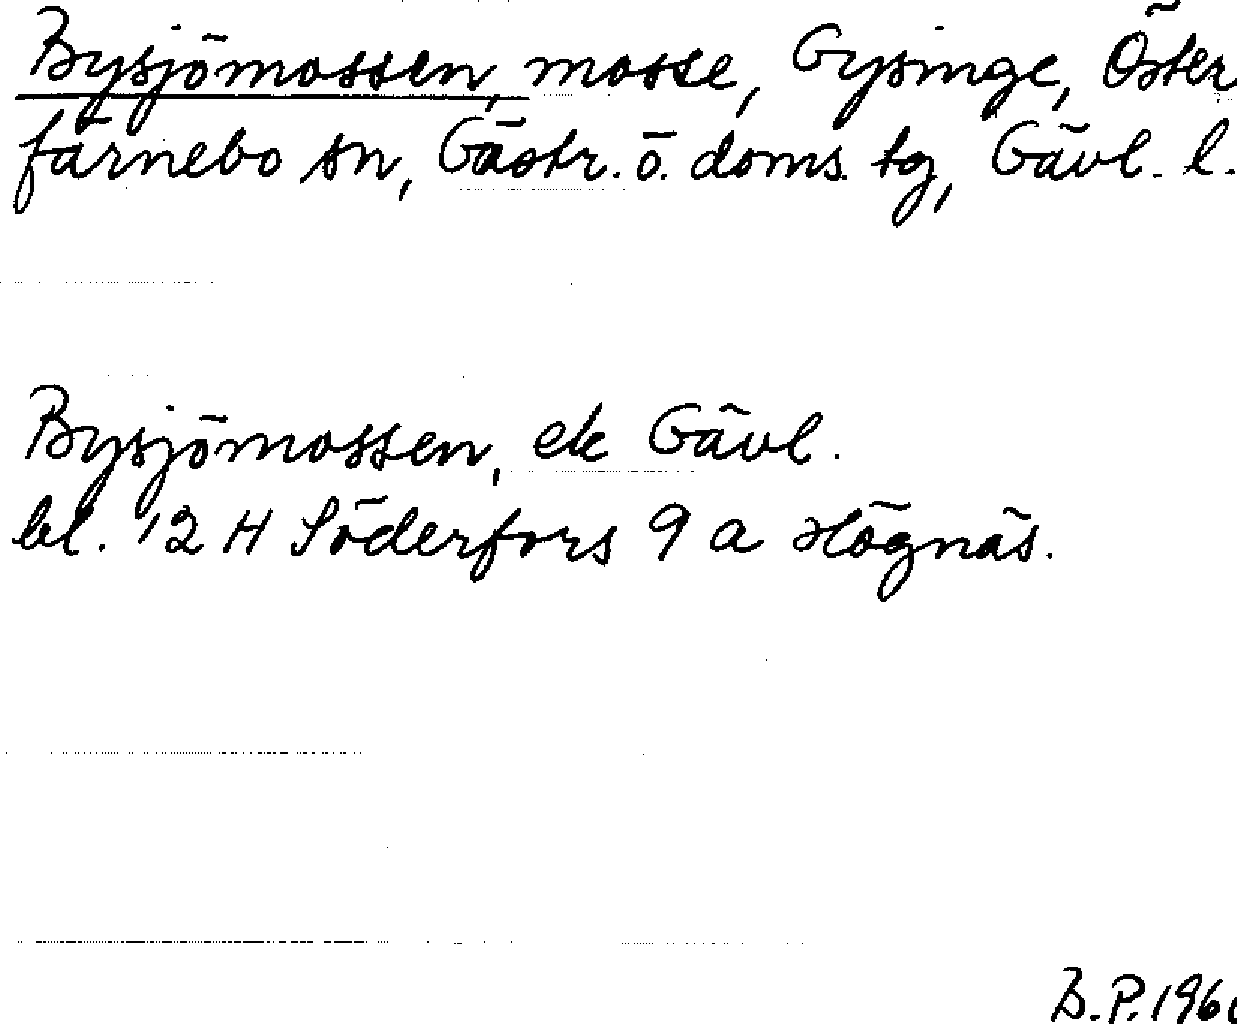 Bysjömossen, mosse, Gysinge, Öster
färnebo sn, Gästr. ö. doms. tg, Gävl. l.
Bysjömossen, ek Gävl.
bl. 12 H Söderfors 9 a Högnäs.
B.P. 196